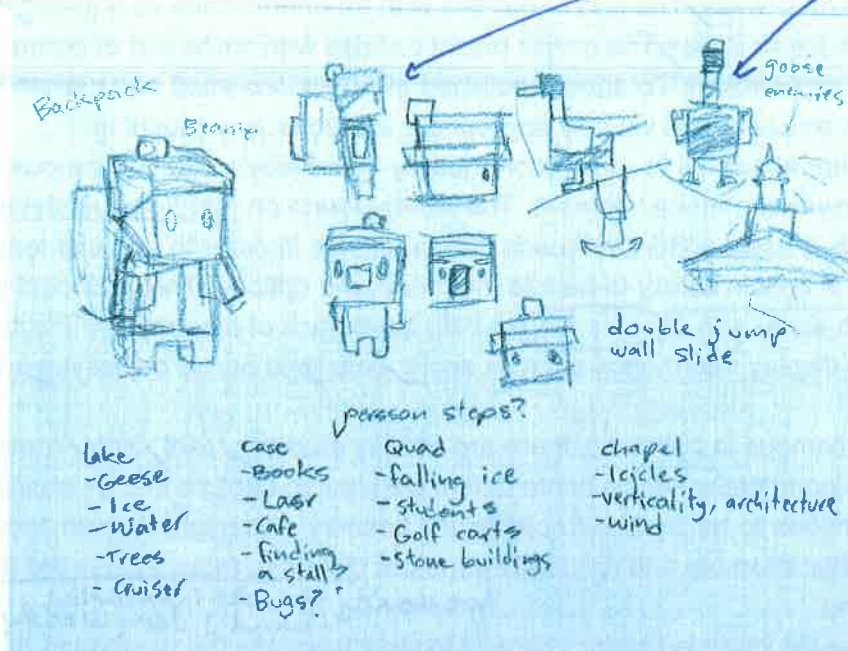 Backpack
Beanie
goose
enemies
double jump
wall slide
persson steps?
Lake
-Geese
-Ice
-Water
-Trees
-Cruiser
Case
-Books
-Lasr
-Cafe
-finding
a stall?
-Bugs?
Quad
-falling ice
-students
-Golf carts
-stone buildings
chapel
-Icicles
-verticality, architecture
-wind